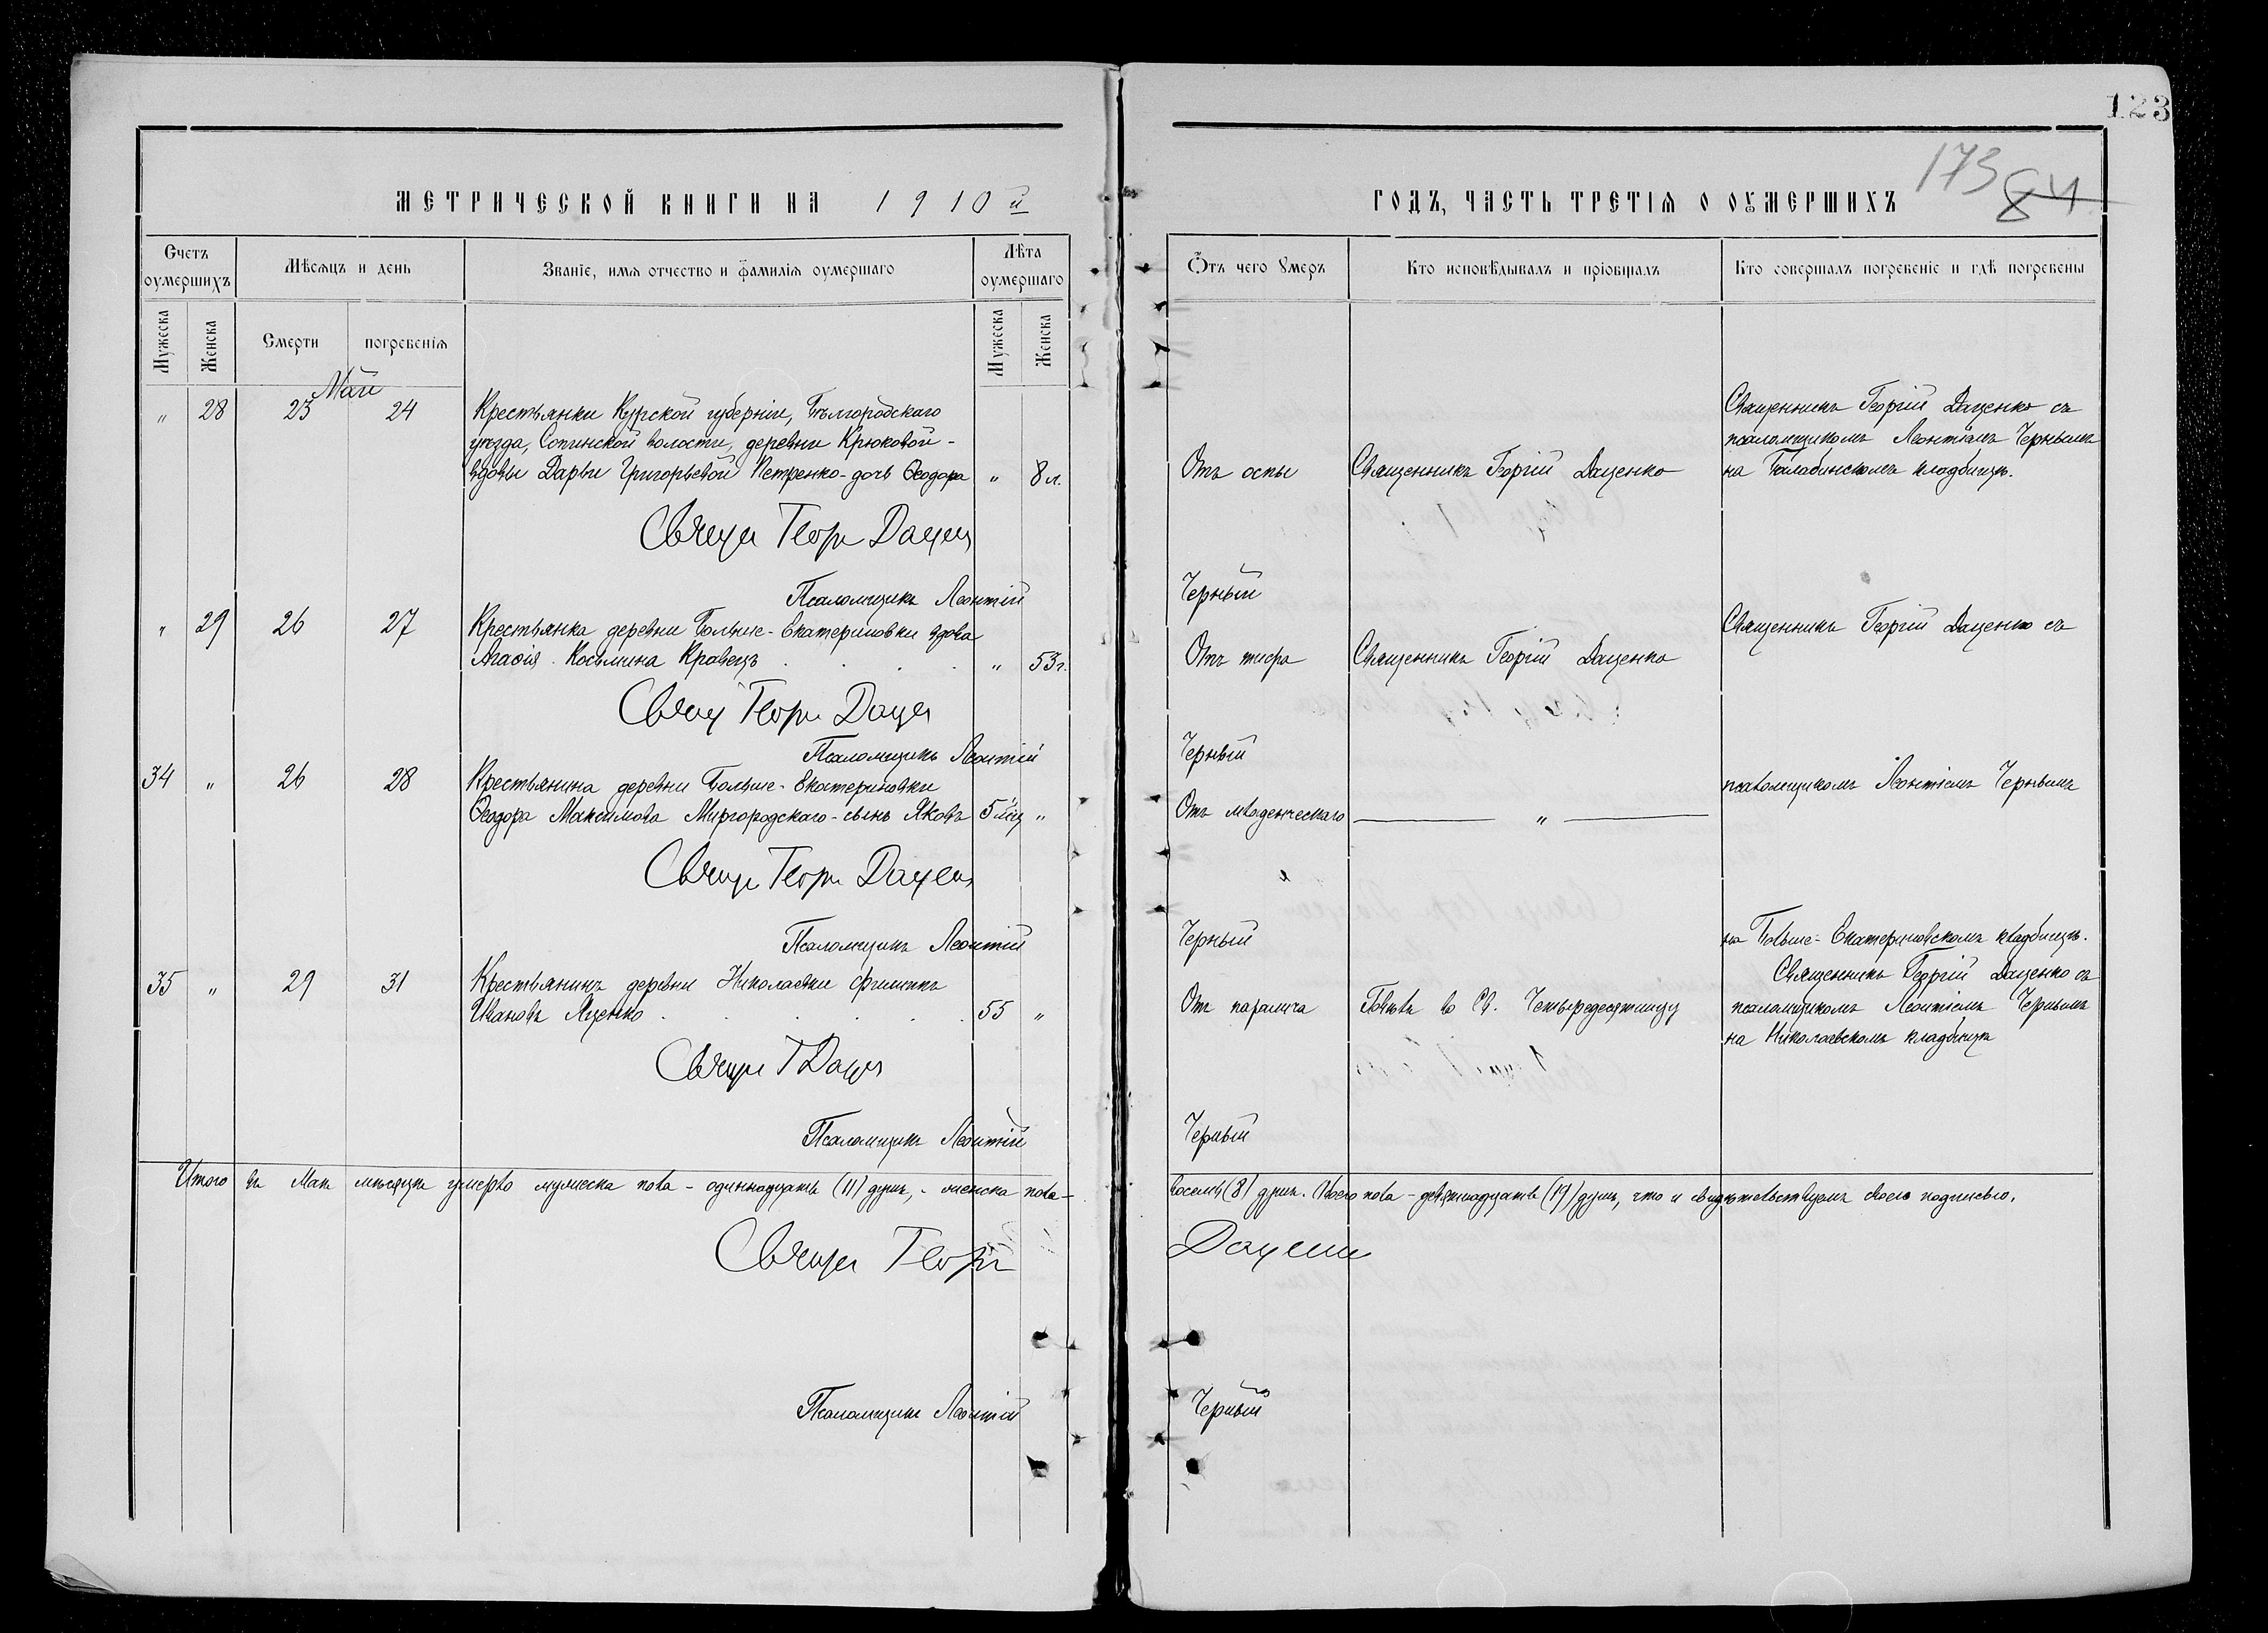 123
173 84
МЕТРИЧЕСКОЙ КНИГИ НА 1910й
ГОДЪ, ЧАСТЬ ТРЕТІЯ О ОУМЕРШИХЪ
Счетъ оумершихъ
Мѣсяцъ и день
Званіе, имя отчество и фамилія оумершаго
Лѣта оумершаго
Мужеска
Женска
Смерти
погребенія
Мужеска
Женска
Отъ чего умеръ
Кто исповѣдывалъ и пріобщалъ
Кто совершалъ погребеніе и гдѣ погребены
Май
„ 28 23 24 Крестьянки Курской губерніи, Бѣлгородскаго
уѣзда, Сопинской волости, деревни Крюковой -
вдовы Дарьи Григорьевой Петренко - дочь Ѳеодора „ 8 л.
Отъ оспы
Священникъ Георгій Даценко
Священникъ Георгій Даценко съ
псаломщикомъ Леонтіемъ Чернымъ
на Балабинскомъ кладбищѣ.
Свящ Геор Дацен
Псаломщикъ Леонтій Черный
„ 29 26 27 Крестьянка деревни Больше-Екатериновки вдова
Агафія Космина Кравецъ „ 53 г.
Отъ тифа
Священникъ Георгій Даценко
Священникъ Георгій Даценко съ
Свящ Геор Даце
Псаломщикъ Леонтій Черный
34 „ 26 28 Крестьянина деревни Больше-Екатериновки
Ѳеодора Максимова Миргородскаго - сынъ Яковъ 5 мѣц „
Отъ младенческаго
„
псаломщикомъ Леонтіемъ Чернымъ
Свящ Геор Дацен
Псаломщикъ Леонтій Черный
на Больше-Екатериновскомъ кладбищѣ.
35 „ 29 31 Крестьянинъ деревни Николаевки Филиппъ
Ивановъ Яценко 55 „
Отъ паралича
Говѣлъ во Св. Четыредесятницу
Священникъ Георгій Даценко съ
псаломщикомъ Леонтіемъ Чернымъ
на Николаевскомъ кладбищѣ
Свящ Г Даце
Псаломщикъ Леонтій Черный
Итого въ Маѣ мѣсяцѣ умерло мужеска пола - одиннадцать (11) душъ, - женска пола -
восемь (8) душъ. Обоего пола - девятнадцать (19) душъ, что и свидѣтельствуемъ своею подписью.
Свящ Георг Даценк
Псаломщикъ Леонтій Черный